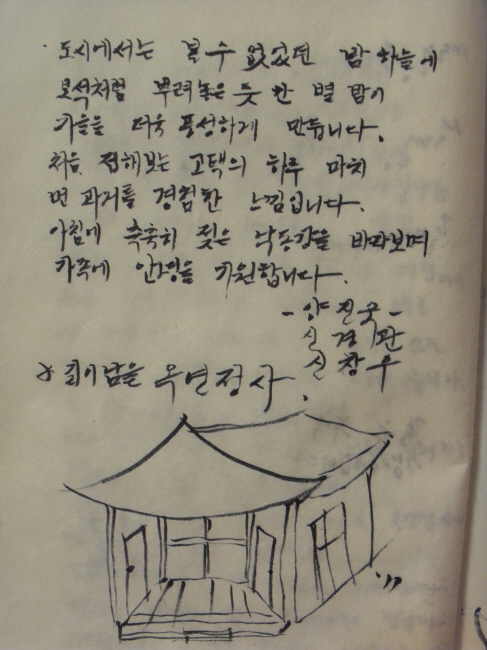 도시에서는 볼 수 없었던 밤 하늘에
보석처럼 뿌려놓은 듯 한 별 밤이
가을을 더욱 풍성하게 만듭니다.
처음 접해보는 고택의 하루 마치
먼 과거를 경험한 느낌입니다.
아침에 촉촉히 젖은 낙동강을 바라보며
가족에 안녕을 기원합니다.
- 양진국 -
신경관
신창우
옥연정사